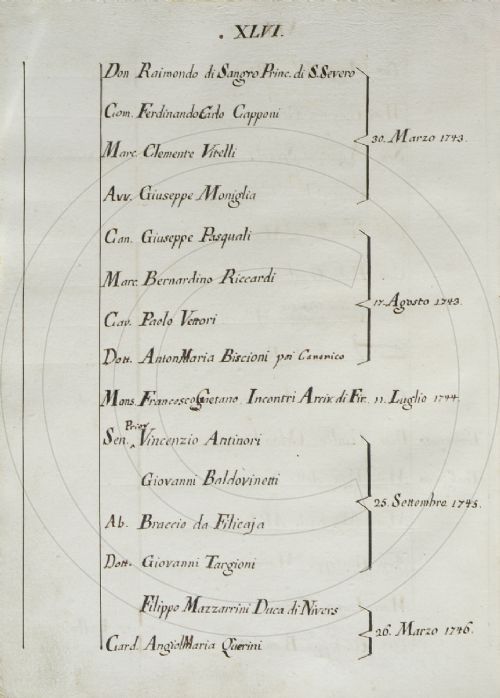 . XLVI.
Don Raimondo di Sangro Princ. di S. Severo
Com. Ferdinando Carlo Capponi
30. Marzo 1743.
Marc. Clemente Vitelli
Avv. Giuseppe Moniglia
Can. Giuseppe Pasquali
Marc. Bernardino Riccardi
17. Agosto 1743.
Cav. Paolo Vettori
Dott. Anton Maria Biscioni poi Canonico
Mons. Francesco Gaetano Incontri Arciv. di Fir. 11. Luglio 1744.
Sen. Prior Vincenzio Antinori
Giovanni Baldovinetti
25. Settembre 1745.
Ab. Braccio da Filicaja
Dott. Giovanni Targioni
Filippo Mazzarrini Duca di Nivers
26. Marzo 1746.
Card. Angiol Maria Querini